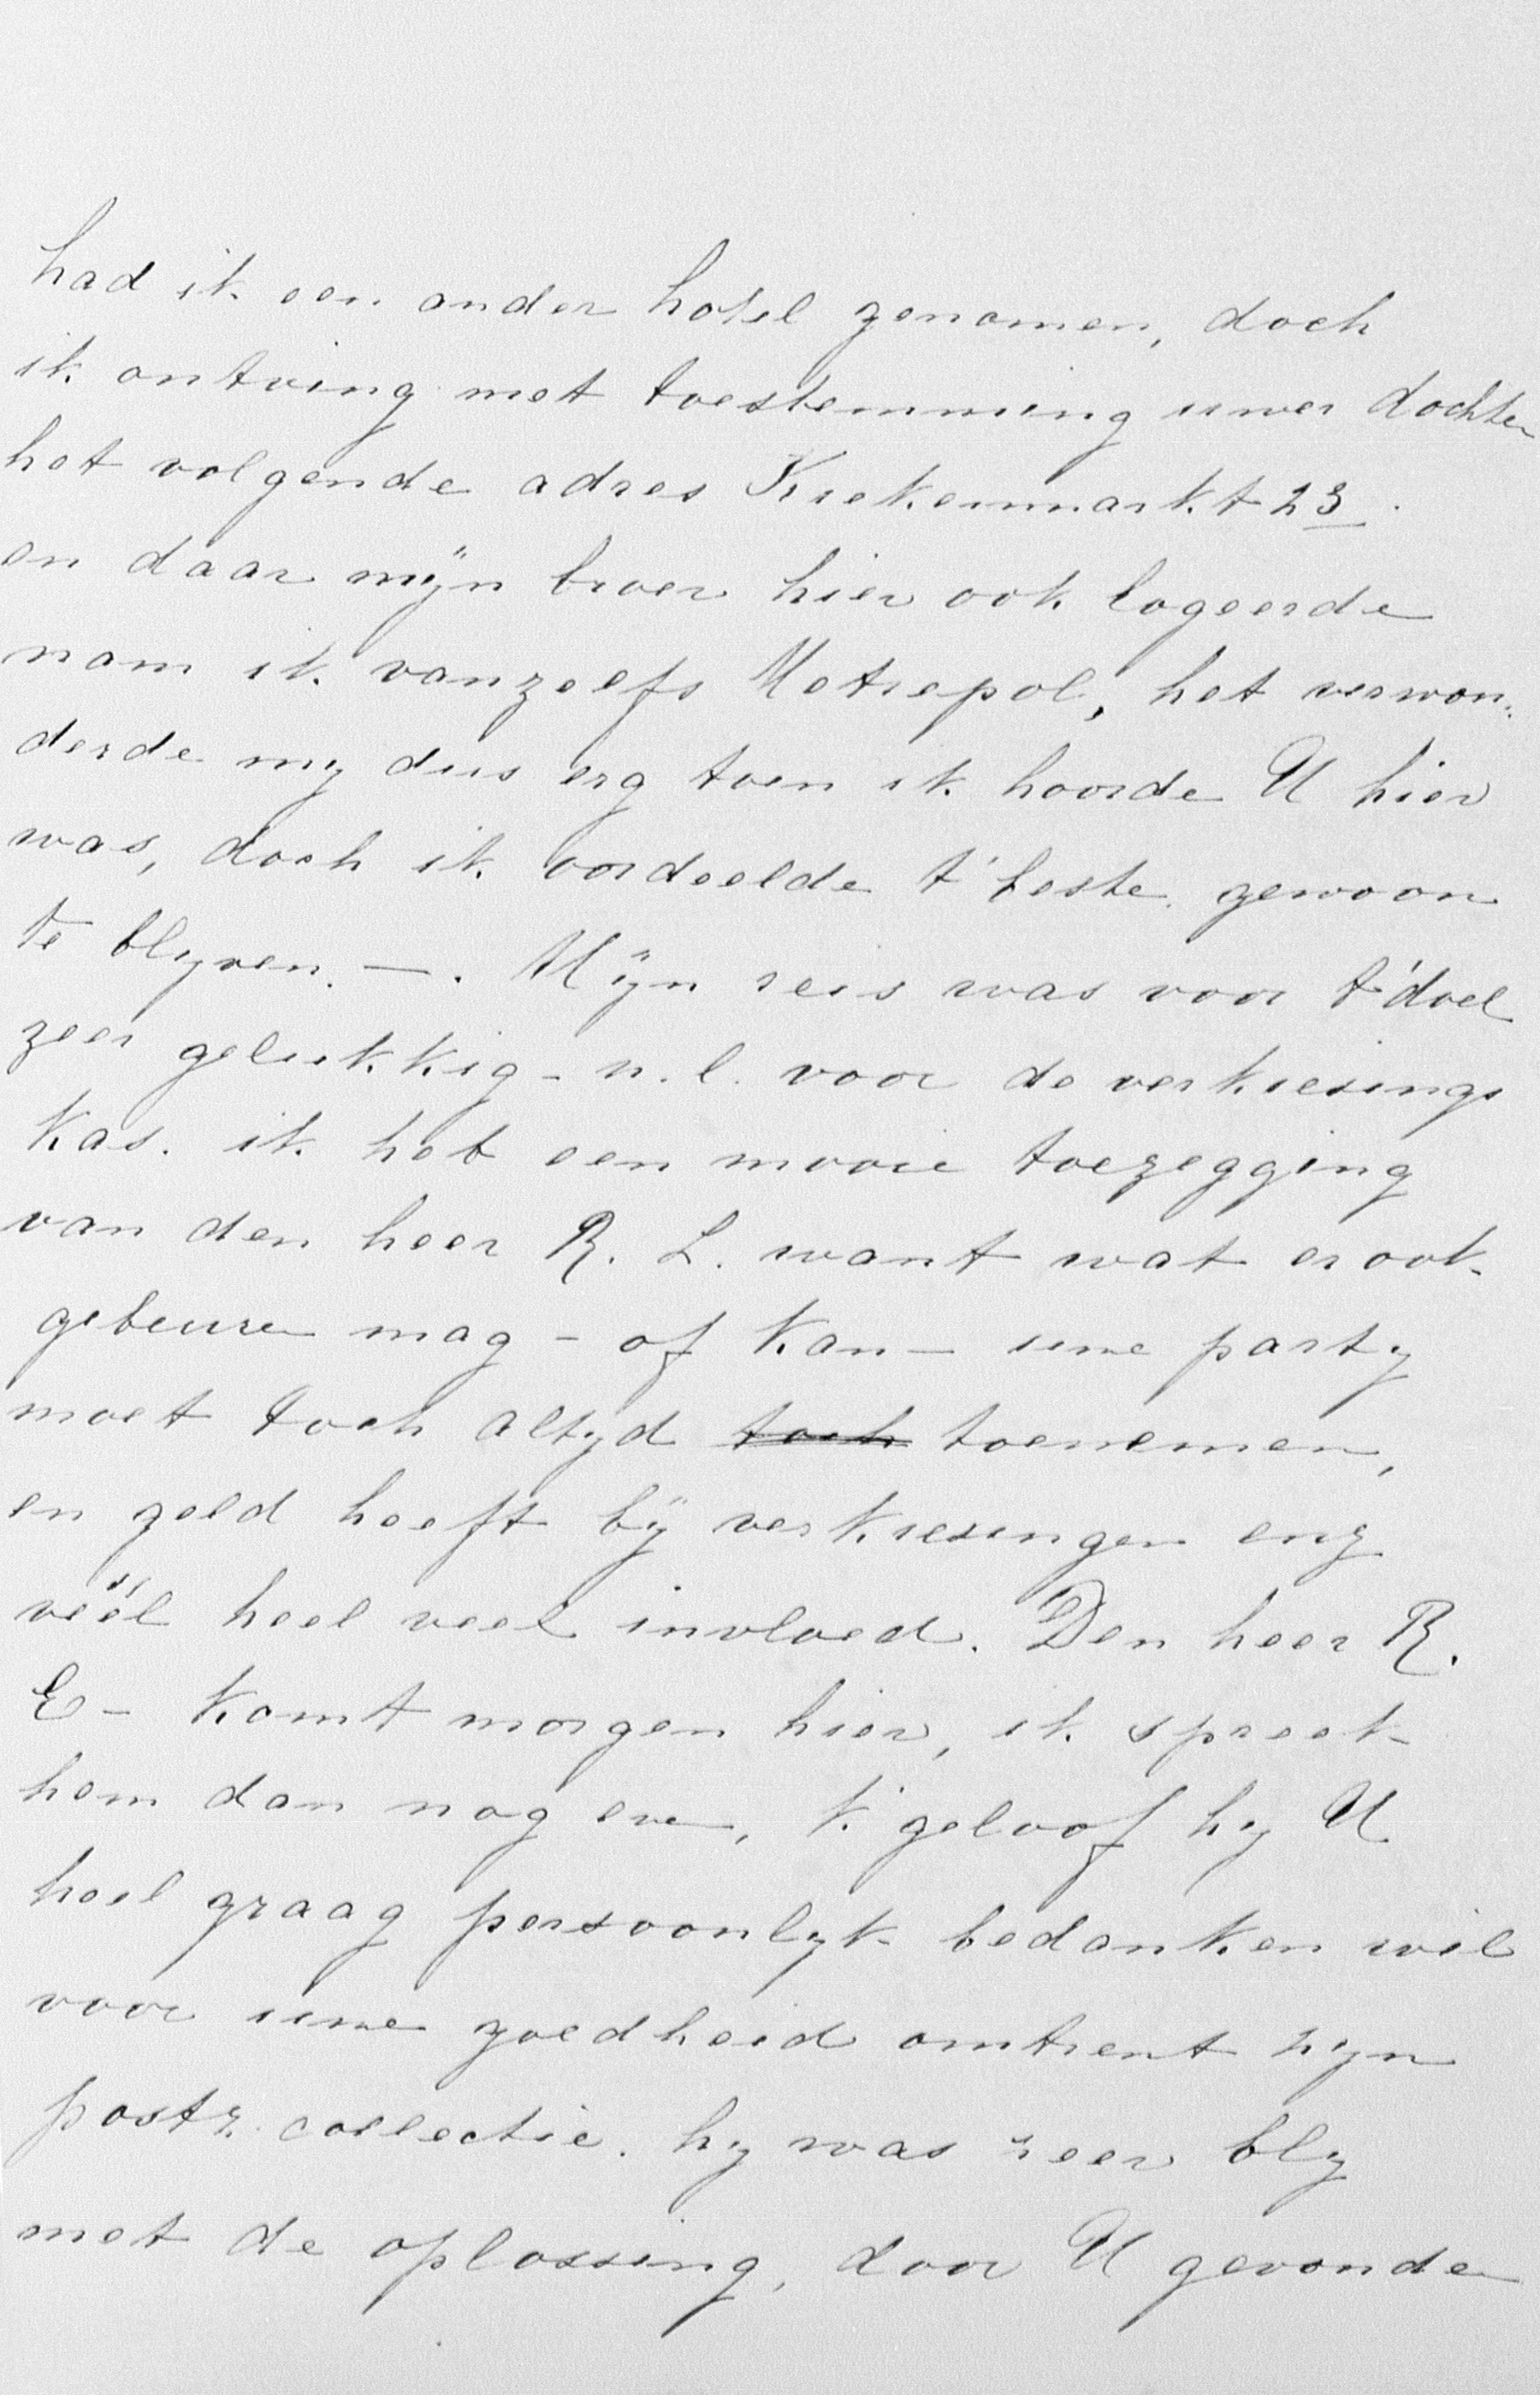 had ik een ander hotel genomen, doch
ik ontving met toestemming uwer dochter
het volgende adres Kiekenmarkt 23.
en daar mÿn broer hier ook logeerde
nam ik vanzelfs Metropol, het verwon:
derde my dus erg toen ik hoorde U hier
was, doch ik oordeelde t'beste gewoon
te blyven. —. Mÿn reis was voor t'doel
zeer gelukkig - n.l. voor de verkiesings
kas. ik heb een mooie toezegging
van den heer R. L. want wat er ook
gebeuren mag - of kan - uwe party
moet toch altyd toch toenemen,
en geld heeft bÿ verkiesingen enz
veël heel veel invloed. Den heer R.
E - komt morgen hier, ik spreek
hem dan nog even, k'geloof hy U
heel graag persoonlyk bedanken wil
voor uwe goedheid omtrent zyn
postz. collectie. hy was zeer bly
met de oplossing, door U gevonden